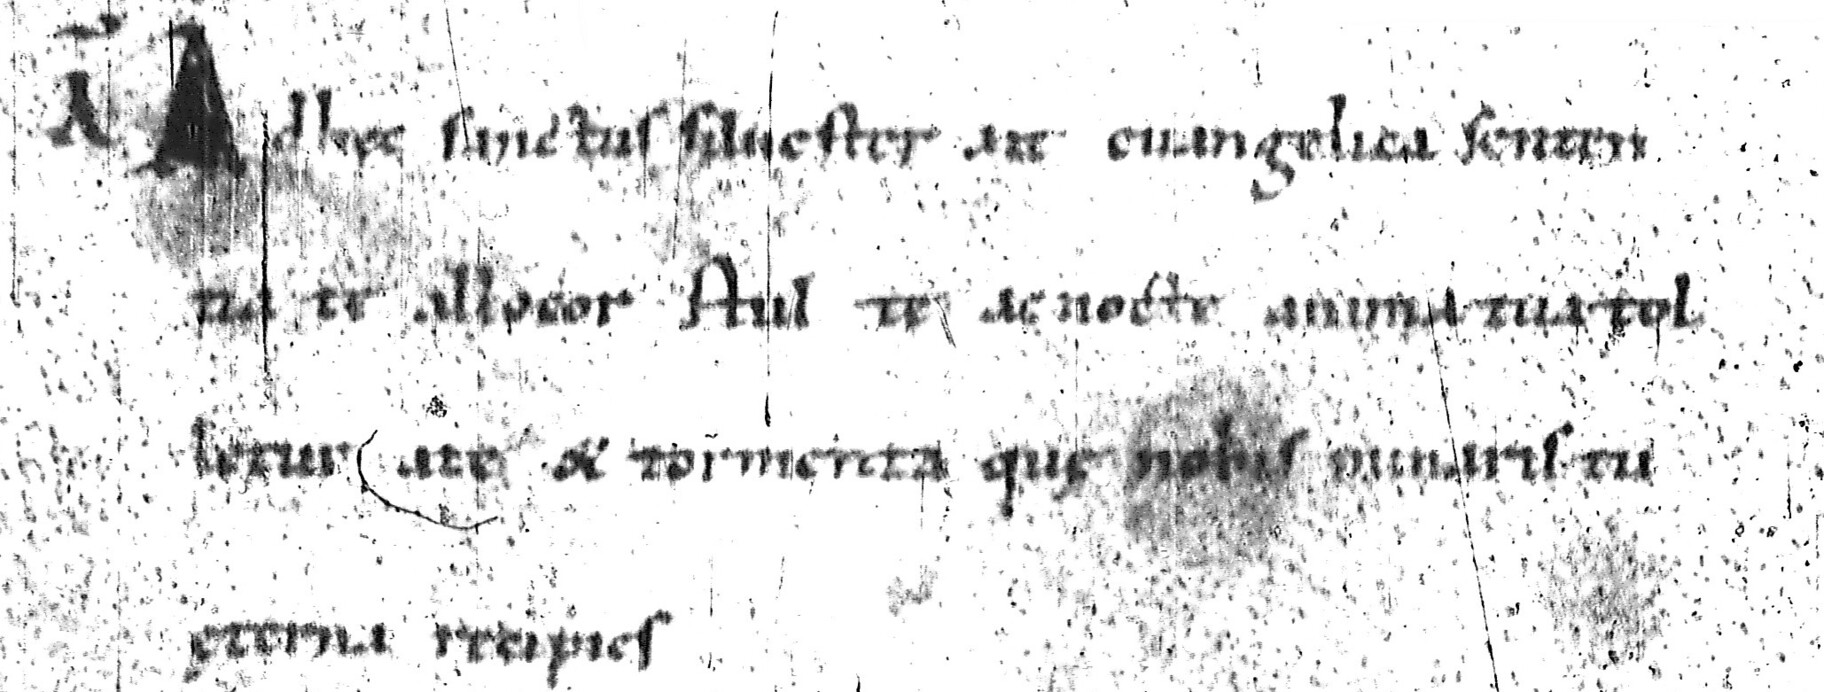 Adhęc sanctus siluester ait euangelica senten
tia te alloquor Stul te ac nocte anima tua tol
letur a te & tormenta quę nobis minaris tu
ęterna recipies